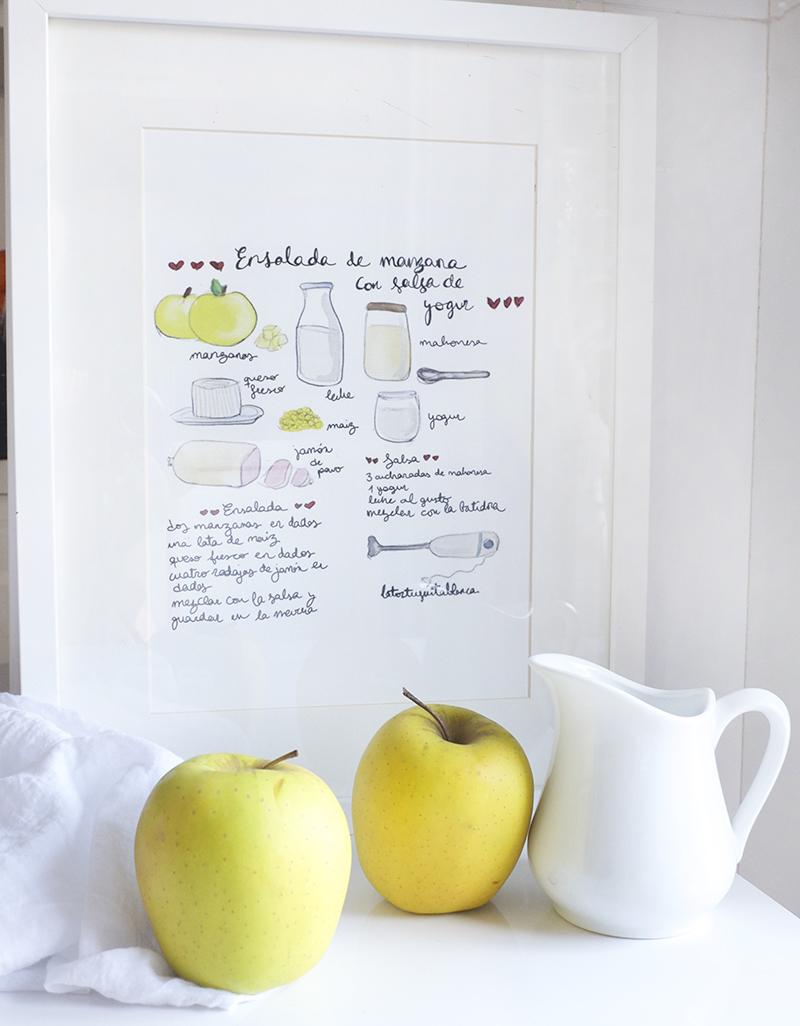 Ensalada de manzana
con salsa de
yogur
manzanas
queso
fresco
leche
mahonesa
maiz
yogur
jamón
de
pavo
Ensalada
dos manzanas en dados
una lata de maiz
queso fresco en dados
cuatro rodajas de jamón en
dados
mezclar con la salsa y
guardar en la nevera
Salsa
3 cucharadas de mahonesa
1 yogur
leche al gusto
mezclar con la batidora
latortuguitablanca